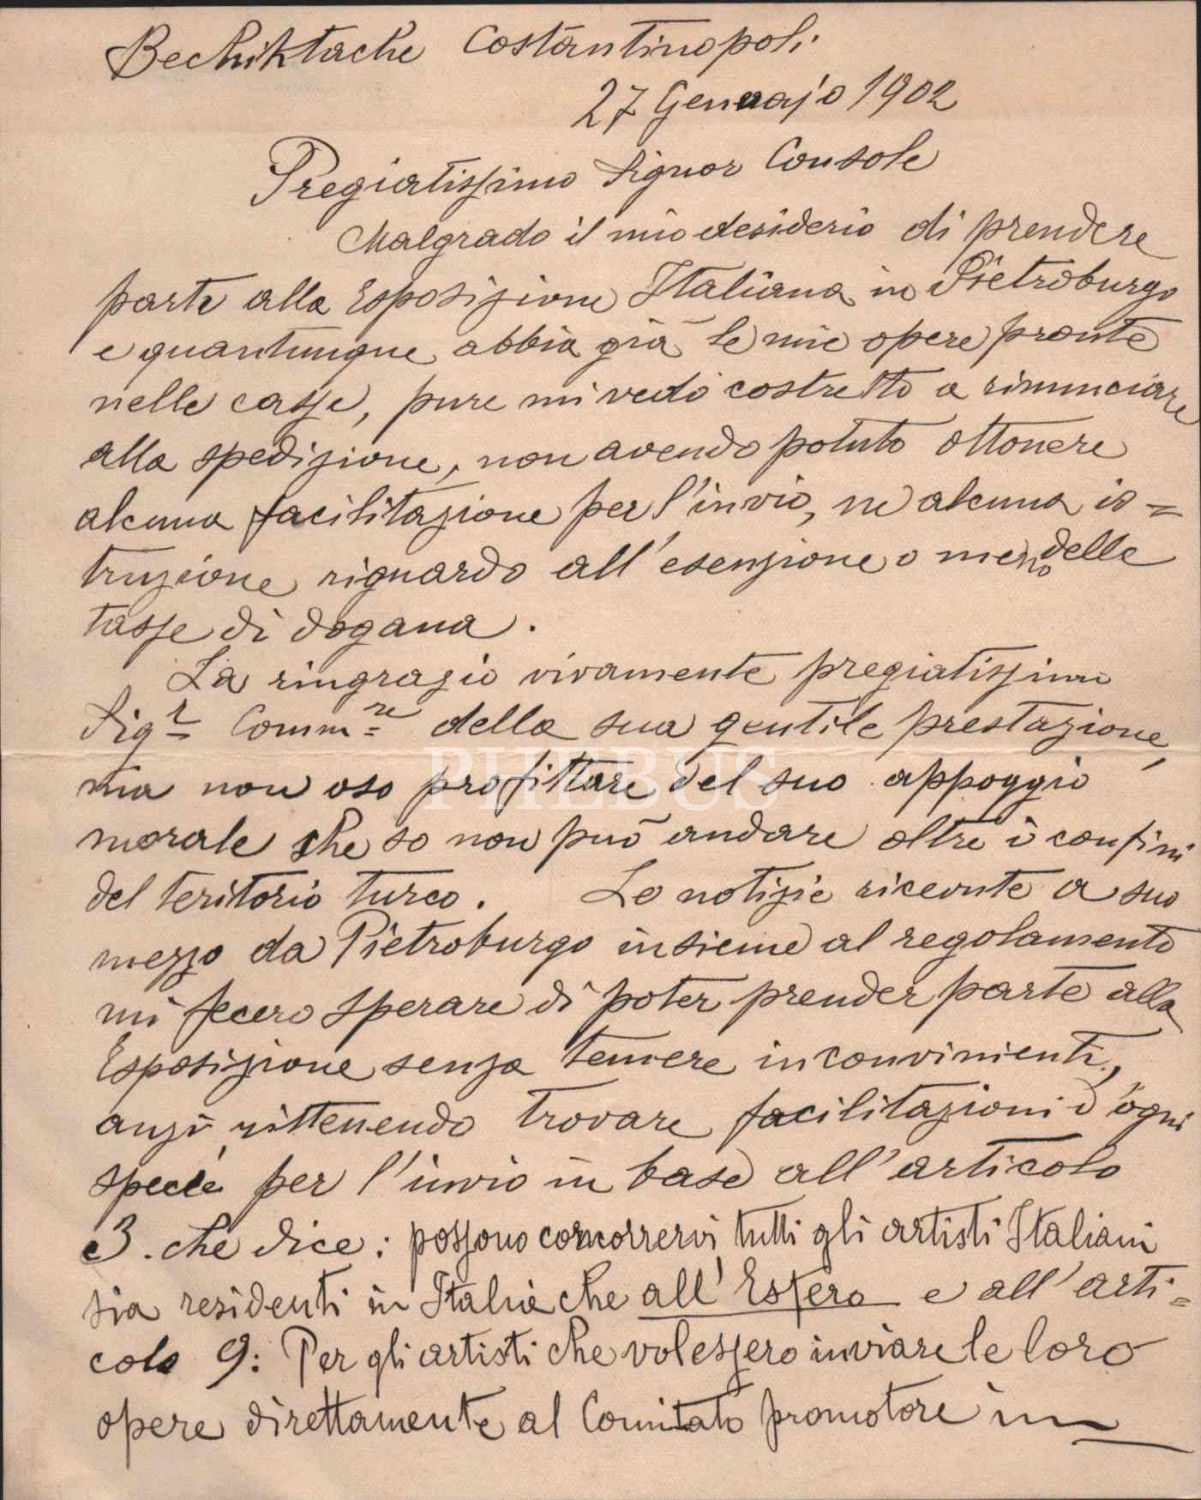 Bechiktache Costantinopoli
27 Gennajo 1902
Pregiatissimo Signor Console
Malgrado il mio desiderio di prendere
parte alla Esposizione Italiana in Pietroburgo
e quantunque abbia già le mie opere pronte
nelle casse, pure mi vedo costretto a rinunciare
alla spedizione, non avendo potuto ottenere
alcuna facilitazione per l'invio, ne alcuna is=
truzione riguardo all'esenzione o meno delle
tasse di dogana.
La ringrazio vivamente pregiatissimo
Sigr Commre della sua gentile prestazione,
ma non oso profittare del suo appoggio
morale che so non può andare oltre i confini
del teritorio turco. Le notizie ricevute a suo
mezzo da Pietroburgo insieme al regolamento
mi fecero sperare di poter prender parte alla
Esposizione senza temere inconvinienti,
anzi rittenendo trovare facilitazioni d'ogni
specie per l'invio in base all'articolo
3. che dice: possono concorrervi tutti gli artisti Italiani
sia residenti in Italia che all'Estero e all'arti=
colo 9: Per gli artisti che volessero inviare le loro
opere direttamente al Comitato promotore in
PHEBUS